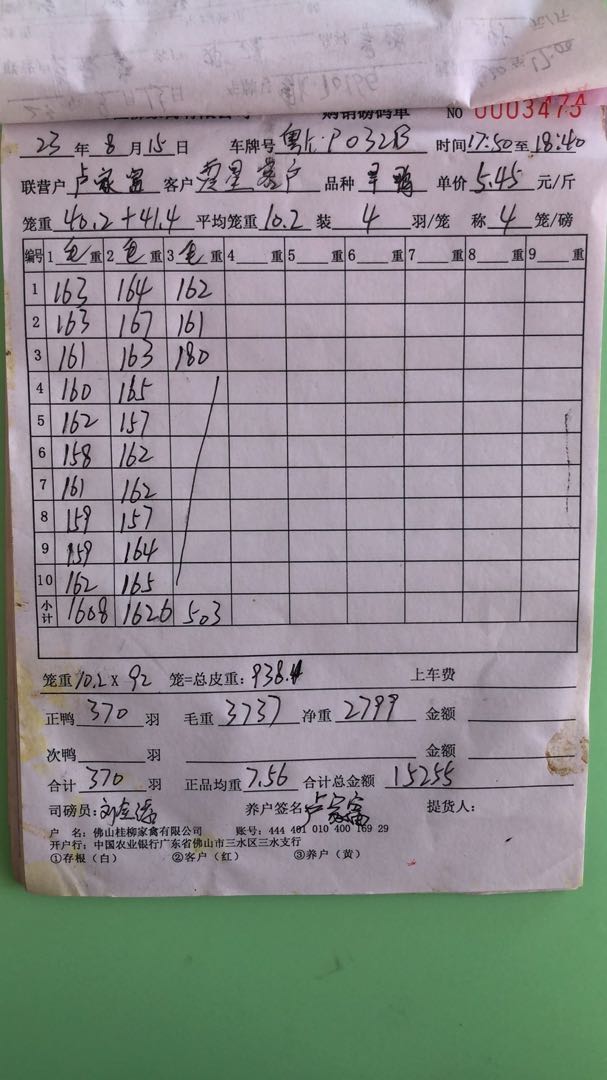 购销磅码单 NO 0003474
23 年 8 月 15 日 车牌号 粤K·P032B 时间 17:50 至 18:40
联营户 卢家富 客户 客户 品种 鸭 单价 5.45 元/斤
笼重 40.2+41.4 平均笼重 10.2 装 4 羽/笼 称 4 笼/磅
编号 1 毛 重 2 毛 重 3 毛 重 4 重 5 重 6 重 7 重 8 重 9 重
1 163 164 162
2 163 167 161
3 161 163 180
4 160 165
5 162 157
6 158 162
7 161 162
8 159 157
9 159 164
10 162 165
小计 1608 1626 503
笼重 10.2 x 92 笼=总皮重: 938.4 上车费
正鸭 370 羽 毛重 3737 净重 2799 金额
次鸭 羽 金额
合计 370 羽 正品均重 7.56 合计总金额 15255
司磅员: 养户签名 卢家富 提货人:
户 名: 佛山桂柳家禽有限公司 账号: 444 401 010 400 169 29
开户行: 中国农业银行广东省佛山市三水区三水支行
①存根（白） ②客户（红） ③养户（黄）